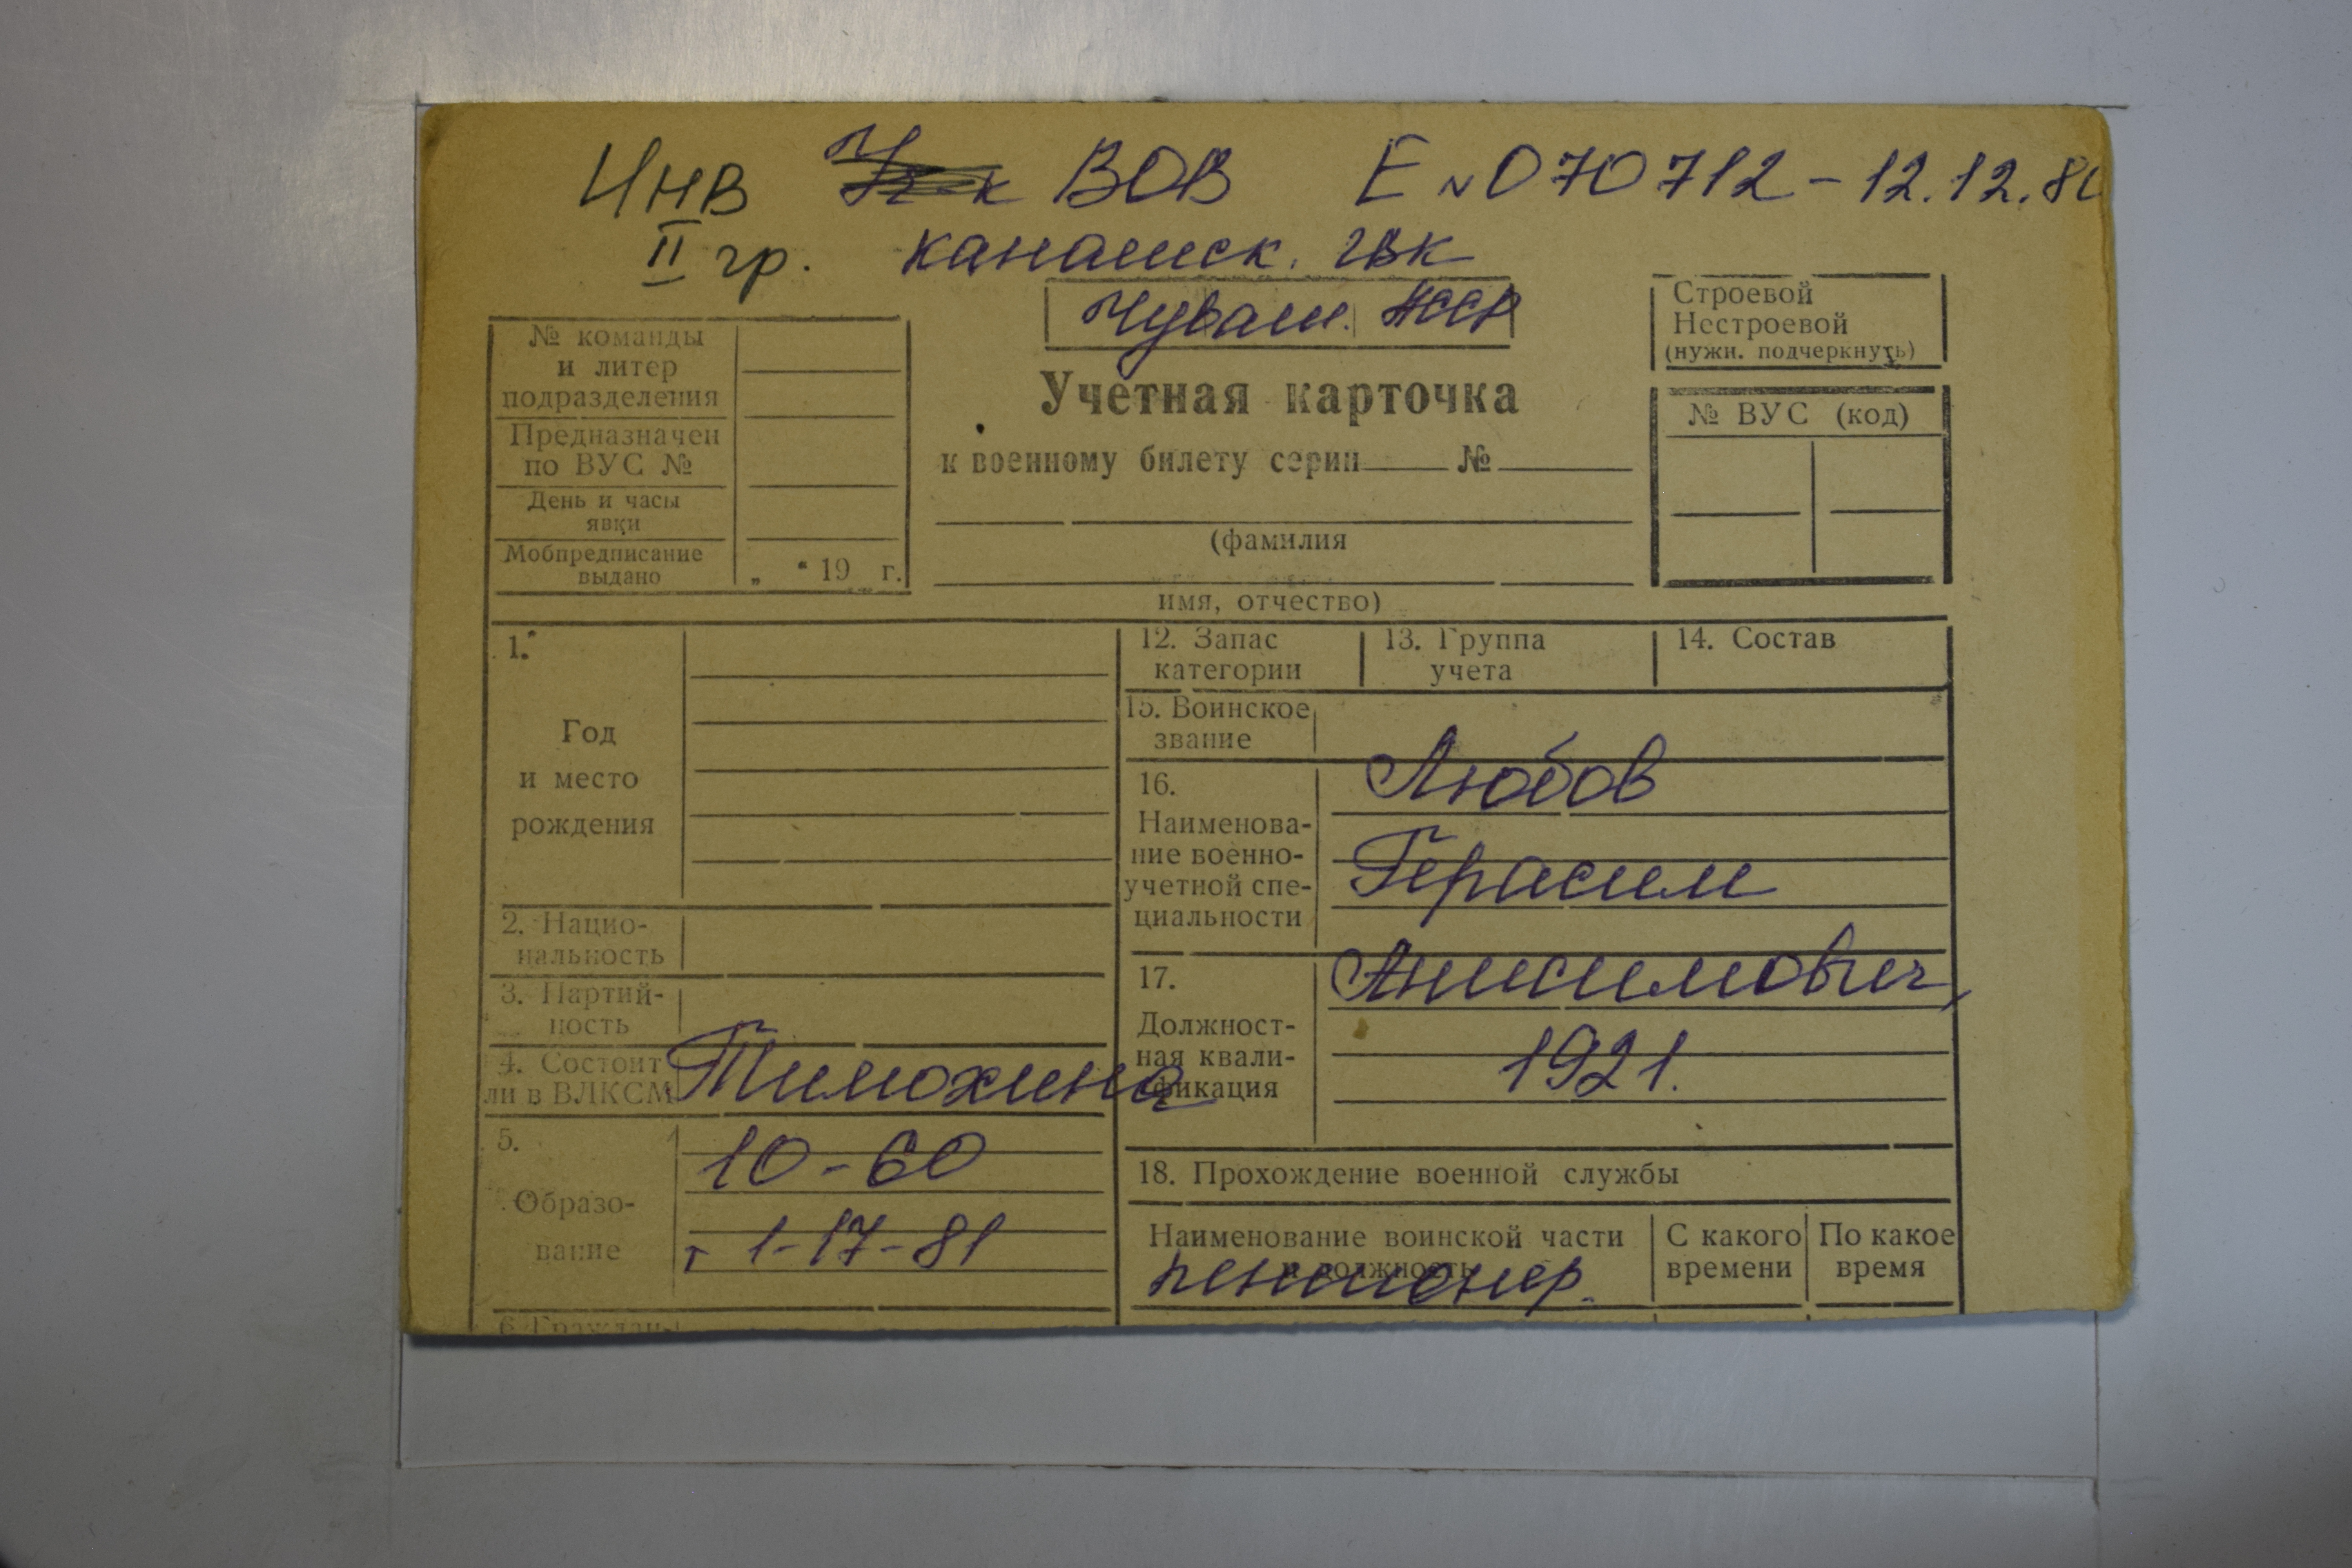 Инв Уч-к ВОВ Е № 070712 - 12.12.80
II гр. Канашск. гвк
Чуваш. АССР
Строевой
Нестроевой
(нужн. подчеркнуть)
№ команды
и литер
подразделения
Предназначен
по ВУС №
День и часы
явки
Мобпредписание
выдано
„ “ 19 г.
Учетная карточка
к военному билету серии № 
(фамилия
имя, отчество)
№ ВУС (код)
1.
Год
и место
рождения
2. Нацио-
нальность
3. Партий-
ность
4. Состоит
ли в ВЛКСМ
Тимохина
5.
Образо-
вание
10-60
т 1-17-81
6. Граждан-
12. Запас
категории
13. Группа
учета
14. Состав
15. Воинское
звание
16.
Наименова-
ние военно-
учетной спе-
циальности
Любов
Герасим
17.
Должност-
ная квали-
фикация
Анисимович,
1921.
18. Прохождение военной службы
Наименование воинской части
и должность
С какого
времени
По какое
время
пенсионер.